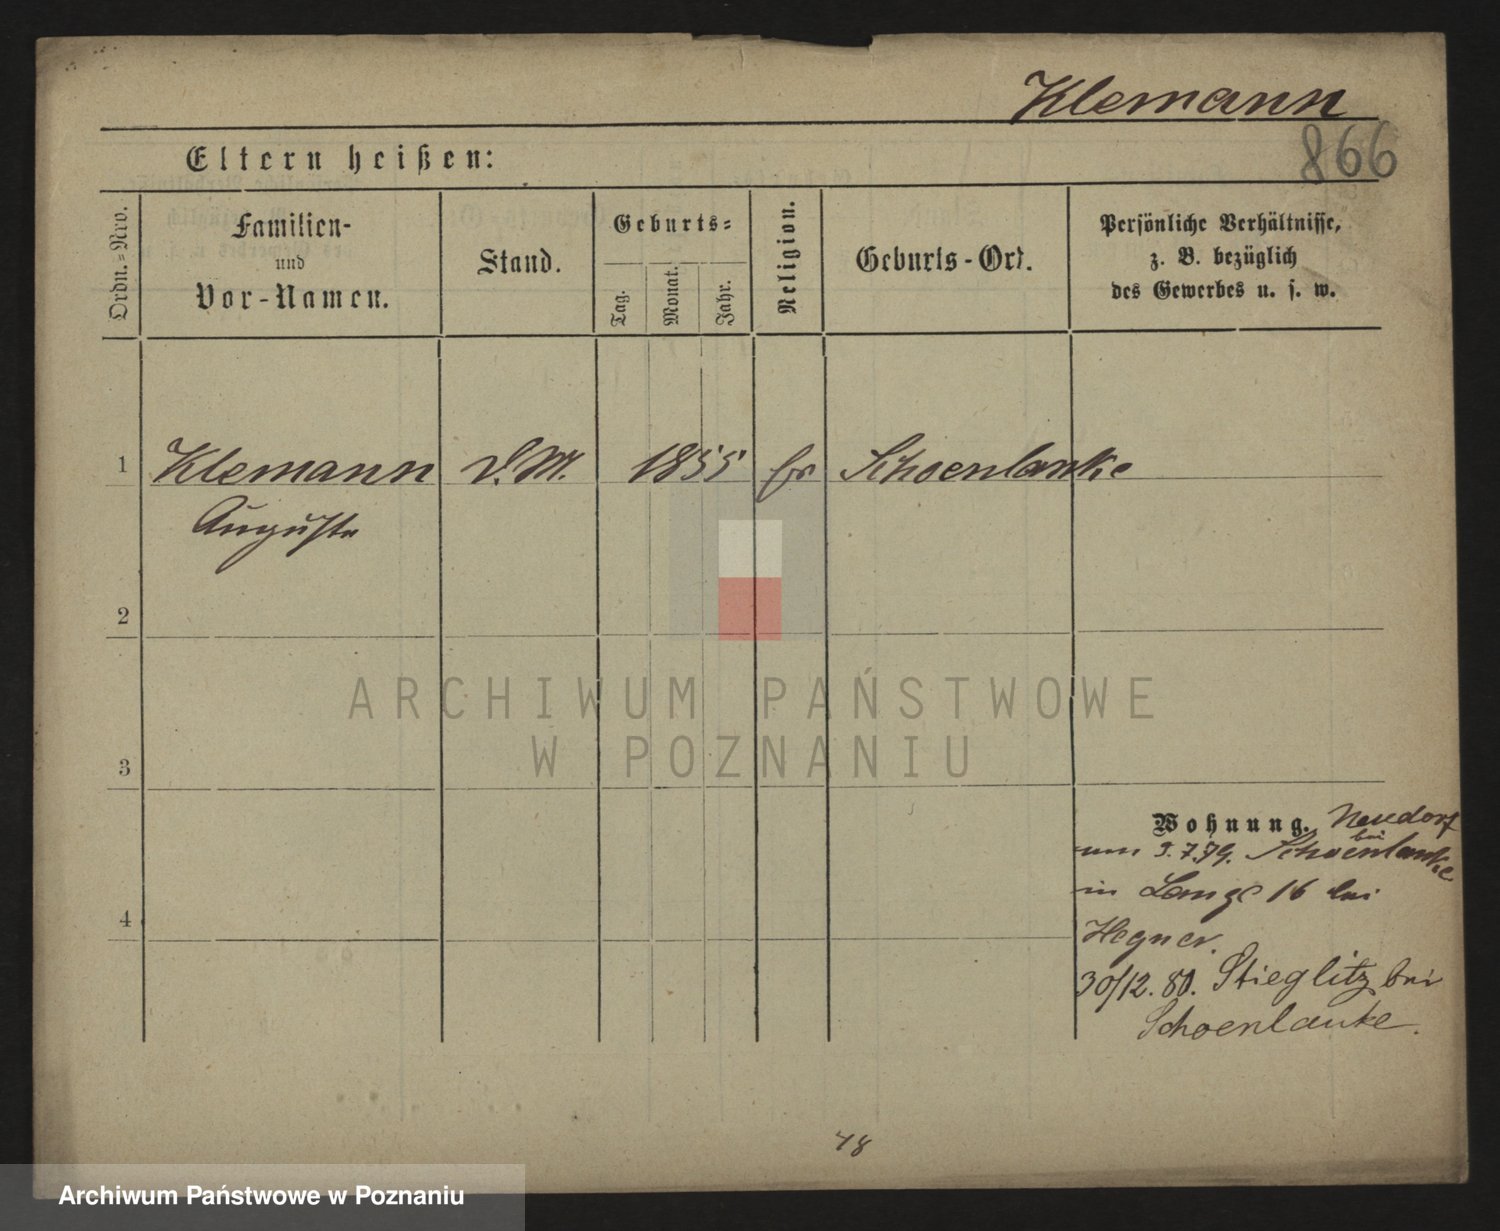 Klemann
866
Eltern heißen:
Ordn.=Nro.
Familien-
und
Vor-Namen.
Stand.
Geburts=
Tag.
Monat.
Jahr.
Religion.
Geburts-Ort.
Persönliche Verhältnisse,
z. B. bezüglich
des Gewerbes u. s. w.
1 Klemann D.M. 1855 Schoenlanke
Auguste
2
3
4
ARCHIWUM PAŃSTWOWE
W POZNANIU
Wohnung. Neudorf
bei
9.7.79. Schoenlanke
16 bei
Hegner.
30/12. 80. Stieglitz bei
Schoenlanke.
48
Archiwum Państwowe w Poznaniu